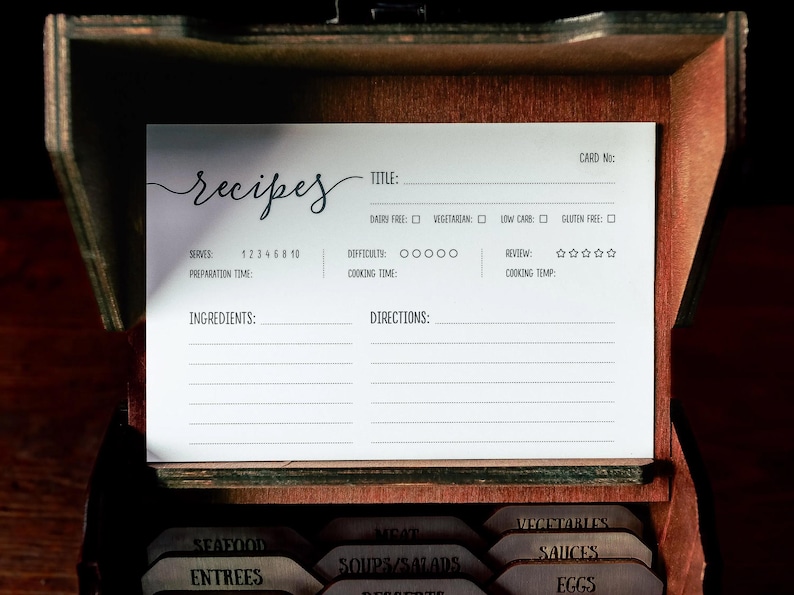 CARD No:
recipes
TITLE:
DAIRY FREE: VEGETARIAN: LOW CARB: GLUTEN FREE:
SERVES: 1 2 3 4 6 8 10 DIFFICULTY: REVIEW:
PREPARATION TIME: COOKING TIME: COOKING TEMP:
INGREDIENTS: DIRECTIONS:
SEAFOOD MEAT VEGETABLES
ENTREES SOUPS/SALADS SAUCES
DESSERTS EGGS